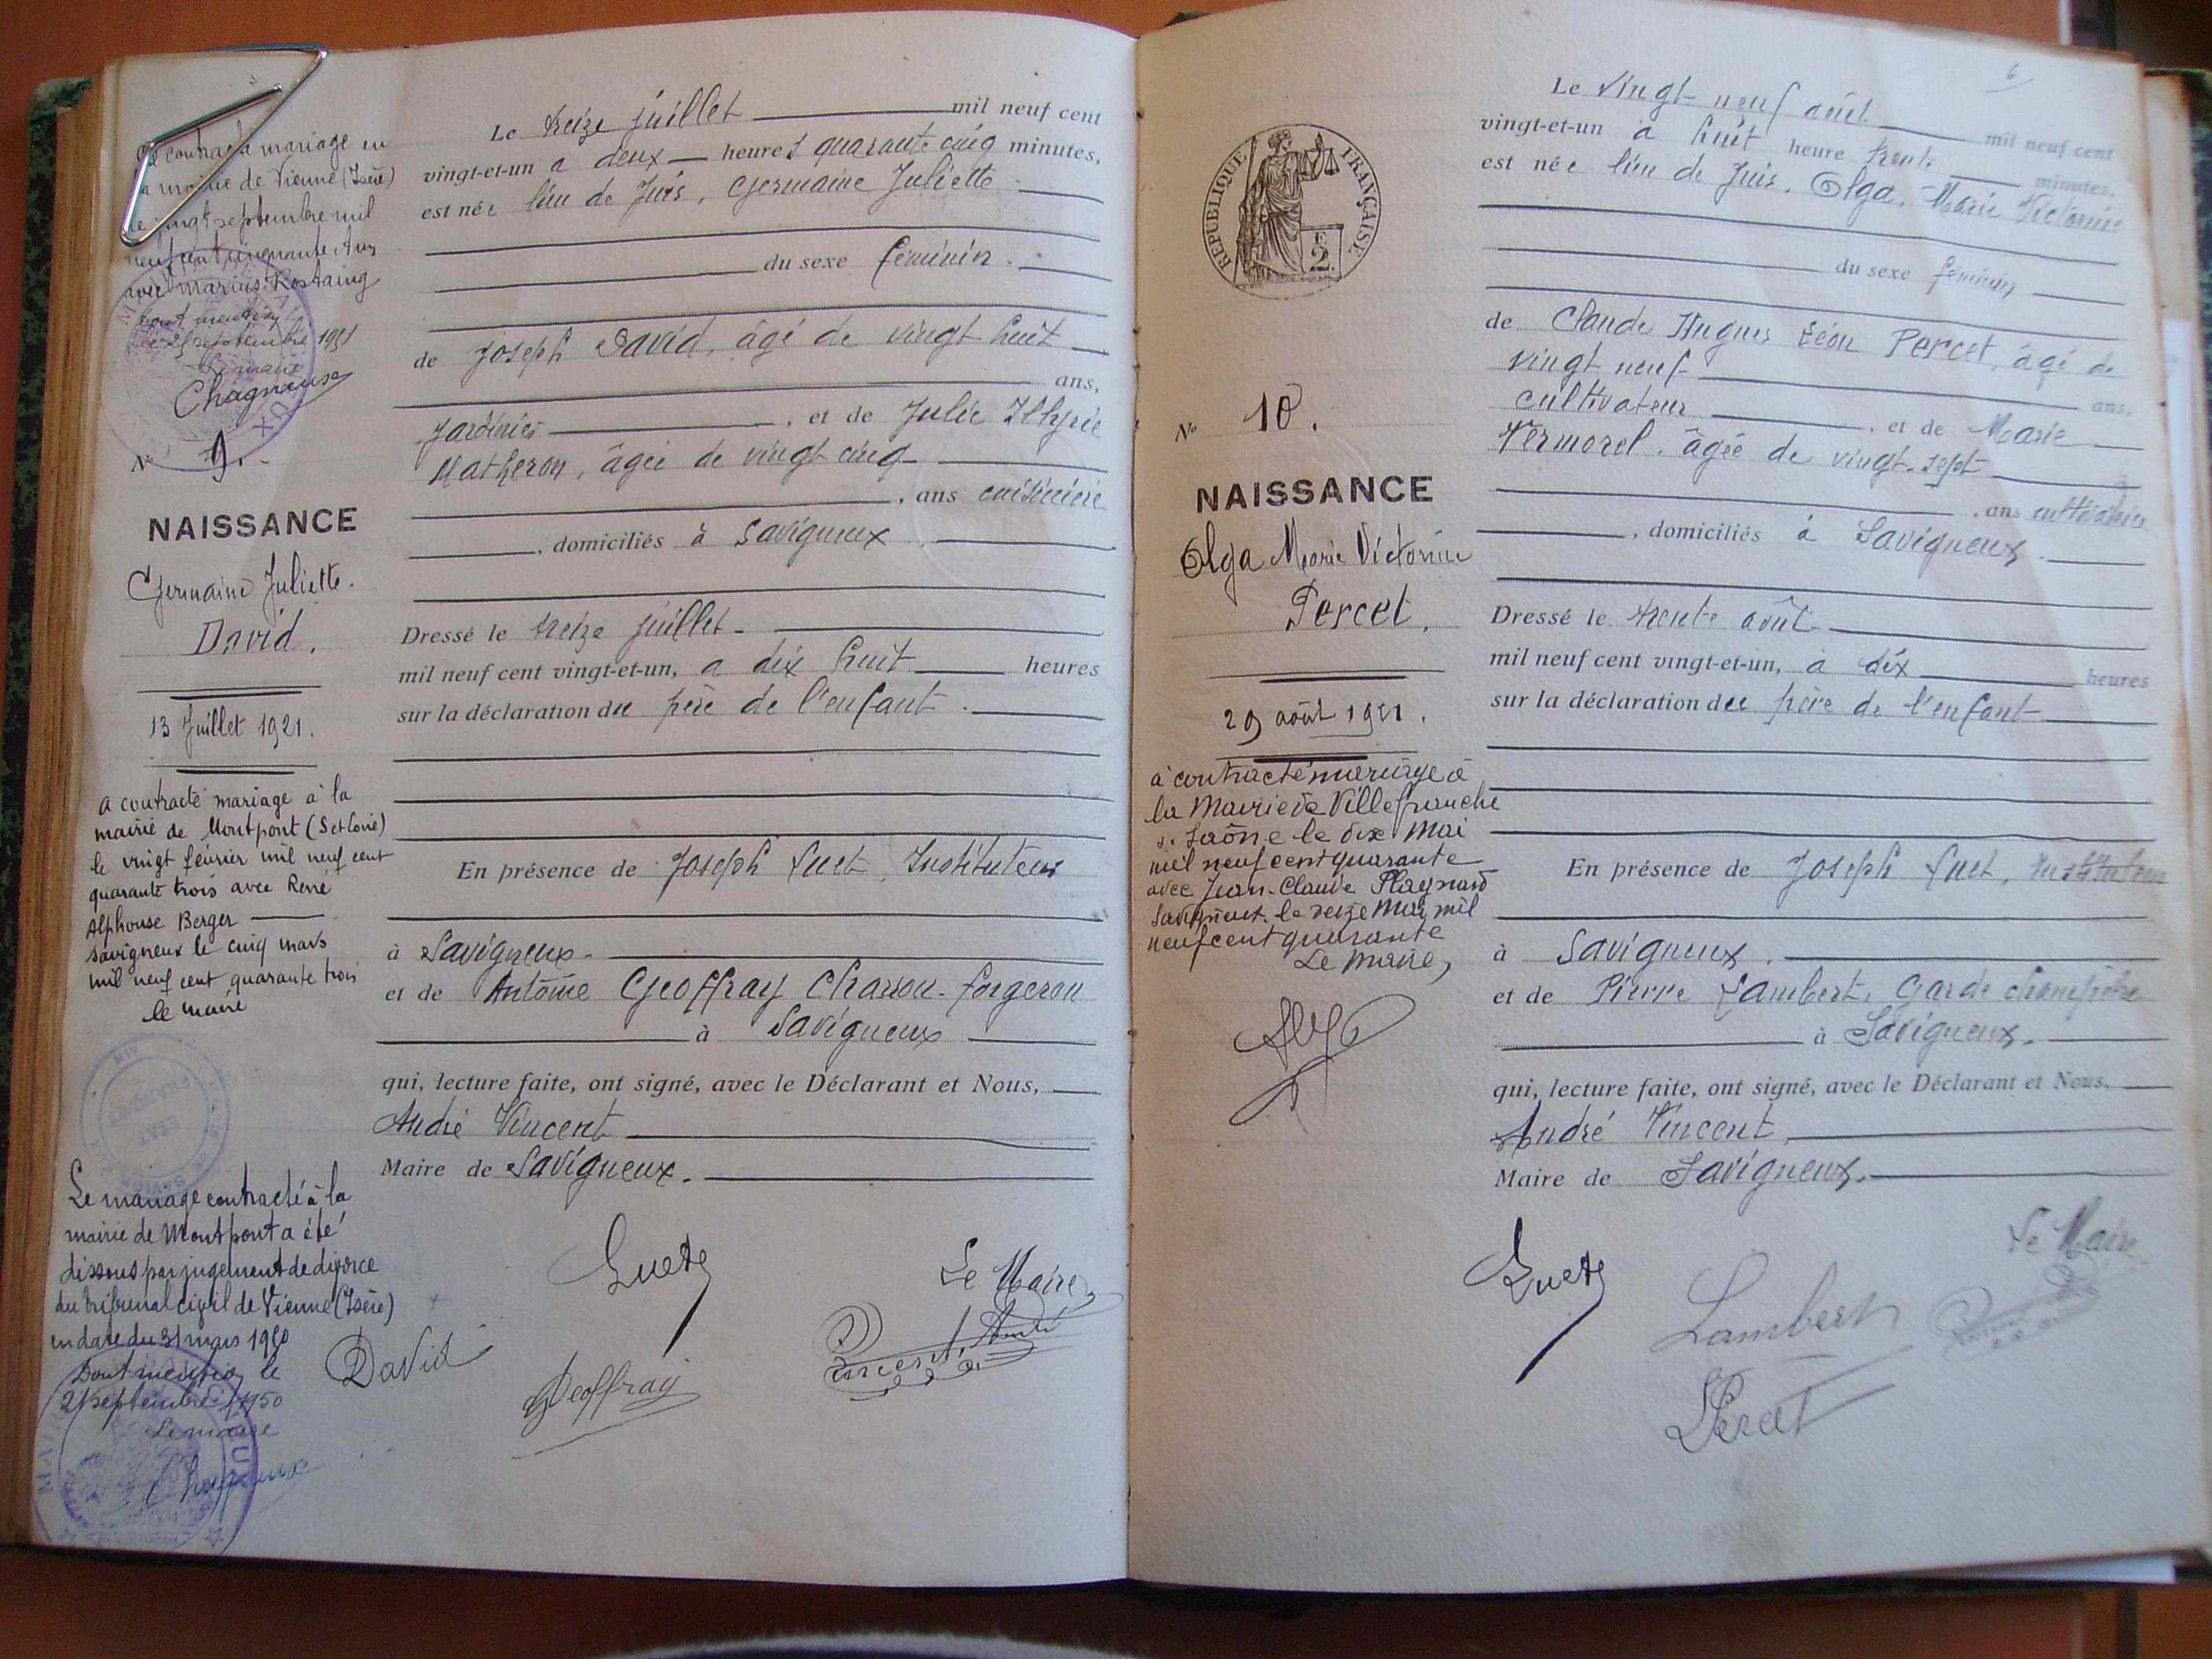 contracté mariage en
la mairie de Vienne (Isère)
le vingt septembre mil
neuf cent cinquante
avec Marius Rostaing
dont mention
le septembre 1951
Le maire
Chagneux
No 9.
NAISSANCE
Germaine Juliette.
David.
13 Juillet 1921.
a contracté mariage à la
mairie de Montpont (S et Loire)
le vingt février mil neuf cent
quarante trois avec René
Alphonse Berger
Savigneux le cinq mars
mil neuf cent quarante trois
le maire
ETAT
Le mariage contracté à la
mairie de Montpont a été
dissous par jugement de divorce
du tribunal civil de Vienne (Isère)
en date du 31 mars 1950
Dont mention le
21 septembre 1950
Le maire
Chagneux
Le treize juillet mil neuf cent
vingt-et-un a deux heures quarante cinq minutes,
est née lieu de Juis, Germaine Juliette
du sexe féminin.
de Joseph David, âgé de vingt huit
ans,
jardinier, et de Julie
Matheron, âgée de vingt cinq
, ans cuisinière
, domiciliés à Savigneux
Dressé le treize juillet
mil neuf cent vingt-et-un, a dix huit heures
sur la déclaration du père de l'enfant.
En présence de Joseph Guet, Instituteur
à Savigneux
et de Antoine Geoffray Charron-forgeron
à Savigneux
qui, lecture faite, ont signé, avec le Déclarant et Nous,
André Vincent
Maire de Savigneux.
Guet
Le Maire,
David
Geoffray
Vincent André
6
REPUBLIQUE FRANÇAISE
2
No 10.
NAISSANCE
Olga Marie Victorine
Percet.
29 août 1921.
a contracté mariage à
la Mairie de Villefranche
s. Saône le dix Mai
mil neuf cent quarante
avec Jean-Claude Plagnard
Savigneux le seize Mai mil
neuf cent quarante
Le Maire,
Le vingt neuf août mil neuf cent
vingt-et-un à huit heure trente minutes,
est née lieu de Juis, Olga, Marie Victorine
du sexe féminin
de Claude Hugues Léon Percet, âgé de
vingt neuf ans,
cultivateur, et de Marie
Vermorel, âgée de vingt-sept
, ans cultivatrice
, domiciliés à Savigneux.
Dressé le trente août
mil neuf cent vingt-et-un, à dix heures
sur la déclaration du père de l'enfant
En présence de Joseph Guet, Instituteur
à Savigneux.
et de Pierre Lambert, Garde champêtre
à Savigneux.
qui, lecture faite, ont signé, avec le Déclarant et Nous,
André Vincent
Maire de Savigneux.
Guet
Lambert
Le Maire
Percet